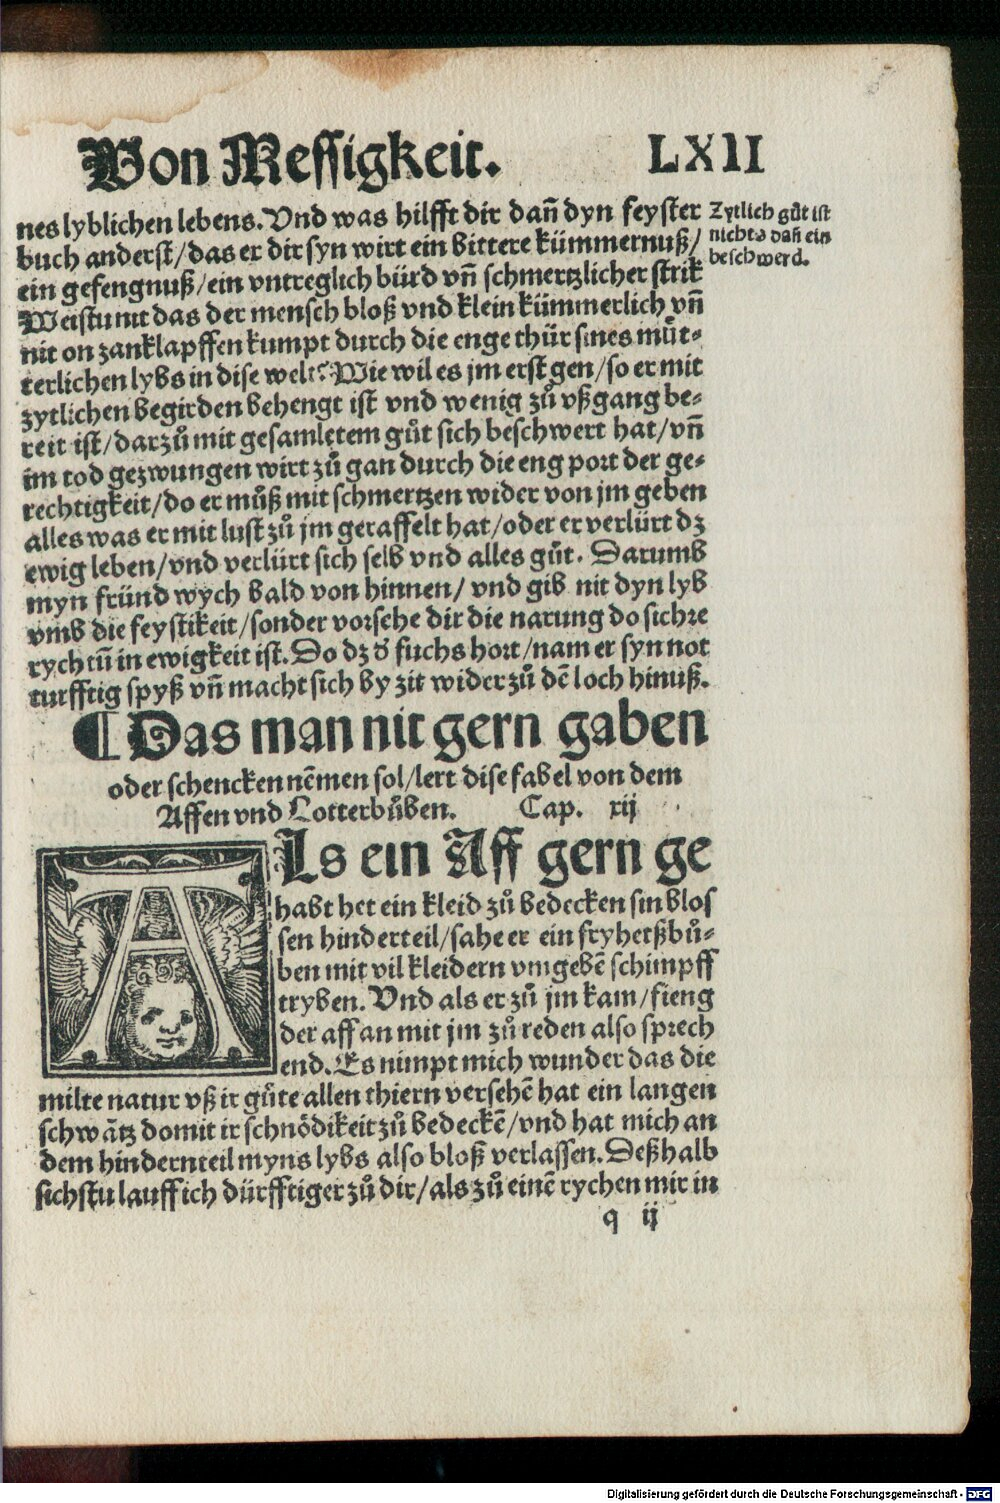 Von Messigkeit. LXII
nes lyblichen lebens. Vnd was hilfft dir dañ dyn feyster
buch anderst/das er dir syn wirt ein bittere kümmernuß/
ein gefengnuß/ein vntreglich bürd vñ schmertzlicher strik
Weistu nit das der mensch bloß vnd klein kümmerlich vñ
nit on zanklapffen kumpt durch die enge thür sines můt⸗
terlichen lybs in dise welt? Wie wil es jm erst gen/so er mit
zytlichen begirden behengt ist vnd wenig zů vßgang be⸗
reit ist/darzů mit gesamletem gůt sich beschwert hat/vñ
im tod gezwungen wirt zů gan durch die eng port der ge⸗
rechtigkeit/do er můß mit schmertzen wider von jm geben
alles was er mit lust zů jm geraffelt hat/oder er verlürt dz
ewig leben/vnd verlürt sich selb vnd alles gůt. Darumb
myn fründ wych bald von hinnen/ vnd gib nit dyn lyb
vmb die feystikeit/sonder vorsehe dir die narung do sichre
rychtũ in ewigkeit ist. Do dz d̕ fuchs hort/nam er syn not
turfftig spyß vñ macht sich by zit wider zů dẽ loch hinuß.
Zytlich gůt ist
nichts dañ ein
beschwerd.
¶ Das man nit gern gaben
oder schencken nẽmen sol/lert dise fabel von dem
Affen vnd Lotterbůben. Cap. xij
Als ein Aff gern ge
habt het ein kleid zů bedecken sin blos
sen hinderteil/sahe er ein fryhetßbů⸗
ben mit vil kleidern vmgebẽ schimpff
tryben. Vnd als er zů jm kam/fieng
der aff an mit jm zů reden also sprech
end. Es nimpt mich wunder das die
milte natur vß ir gůte allen thiern versehẽ hat ein langen
schwãtz domit ir schnödikeit zů bedeckẽ/vnd hat mich an
dem hindernteil myns lybs also bloß verlassen. Deßhalb
sichstu lauff ich dürfftiger zů dir/als zů einẽ rychen mir in
q ij
Digitalisierung gefördert durch die Deutsche Forschungsgemeinschaft - DFG